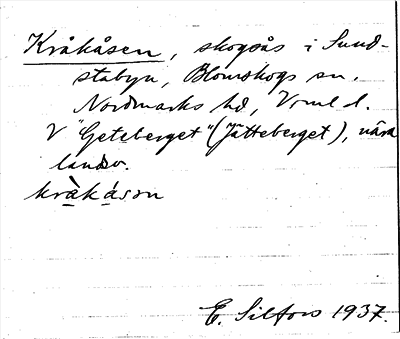 Kråkåsen, skogsås i Sund-
stabyn, Blomskogs sn.
Nordmarks hd, Vrml. l.
V "Geteberget" (Jätteberget), nära
landsv.
kràkáson
E. Silfors 1937.